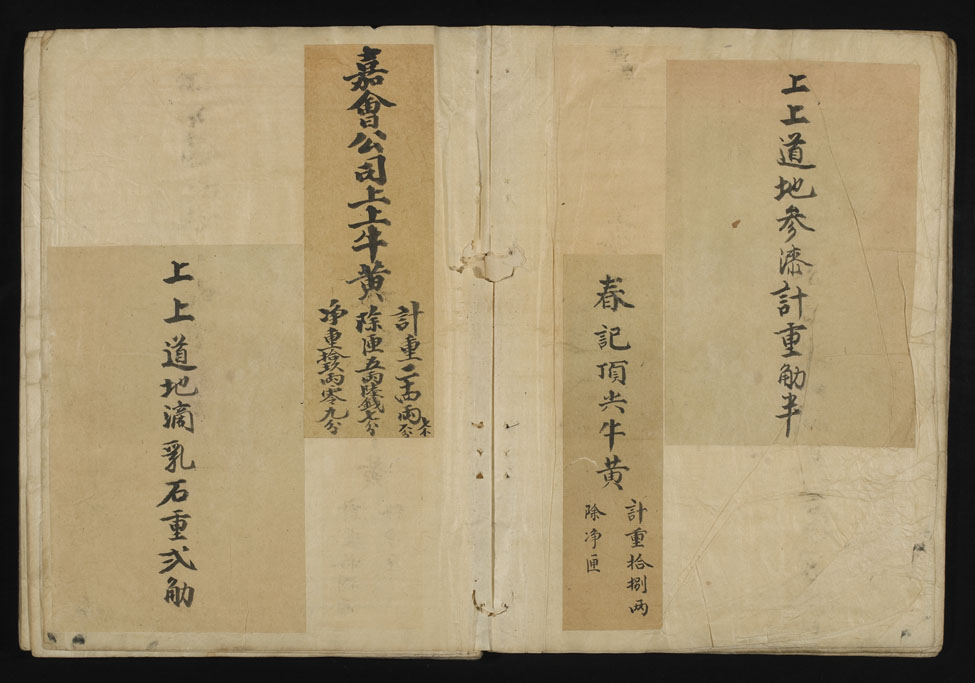 上上道地參漆計重觔半
春記頂尖牛黄
計重拾捌兩
除净匣
嘉會公司上上牛黄
計重二
除匣五兩陸錢七分
净重拾玖兩零九分
上上道地滴乳石重弍觔